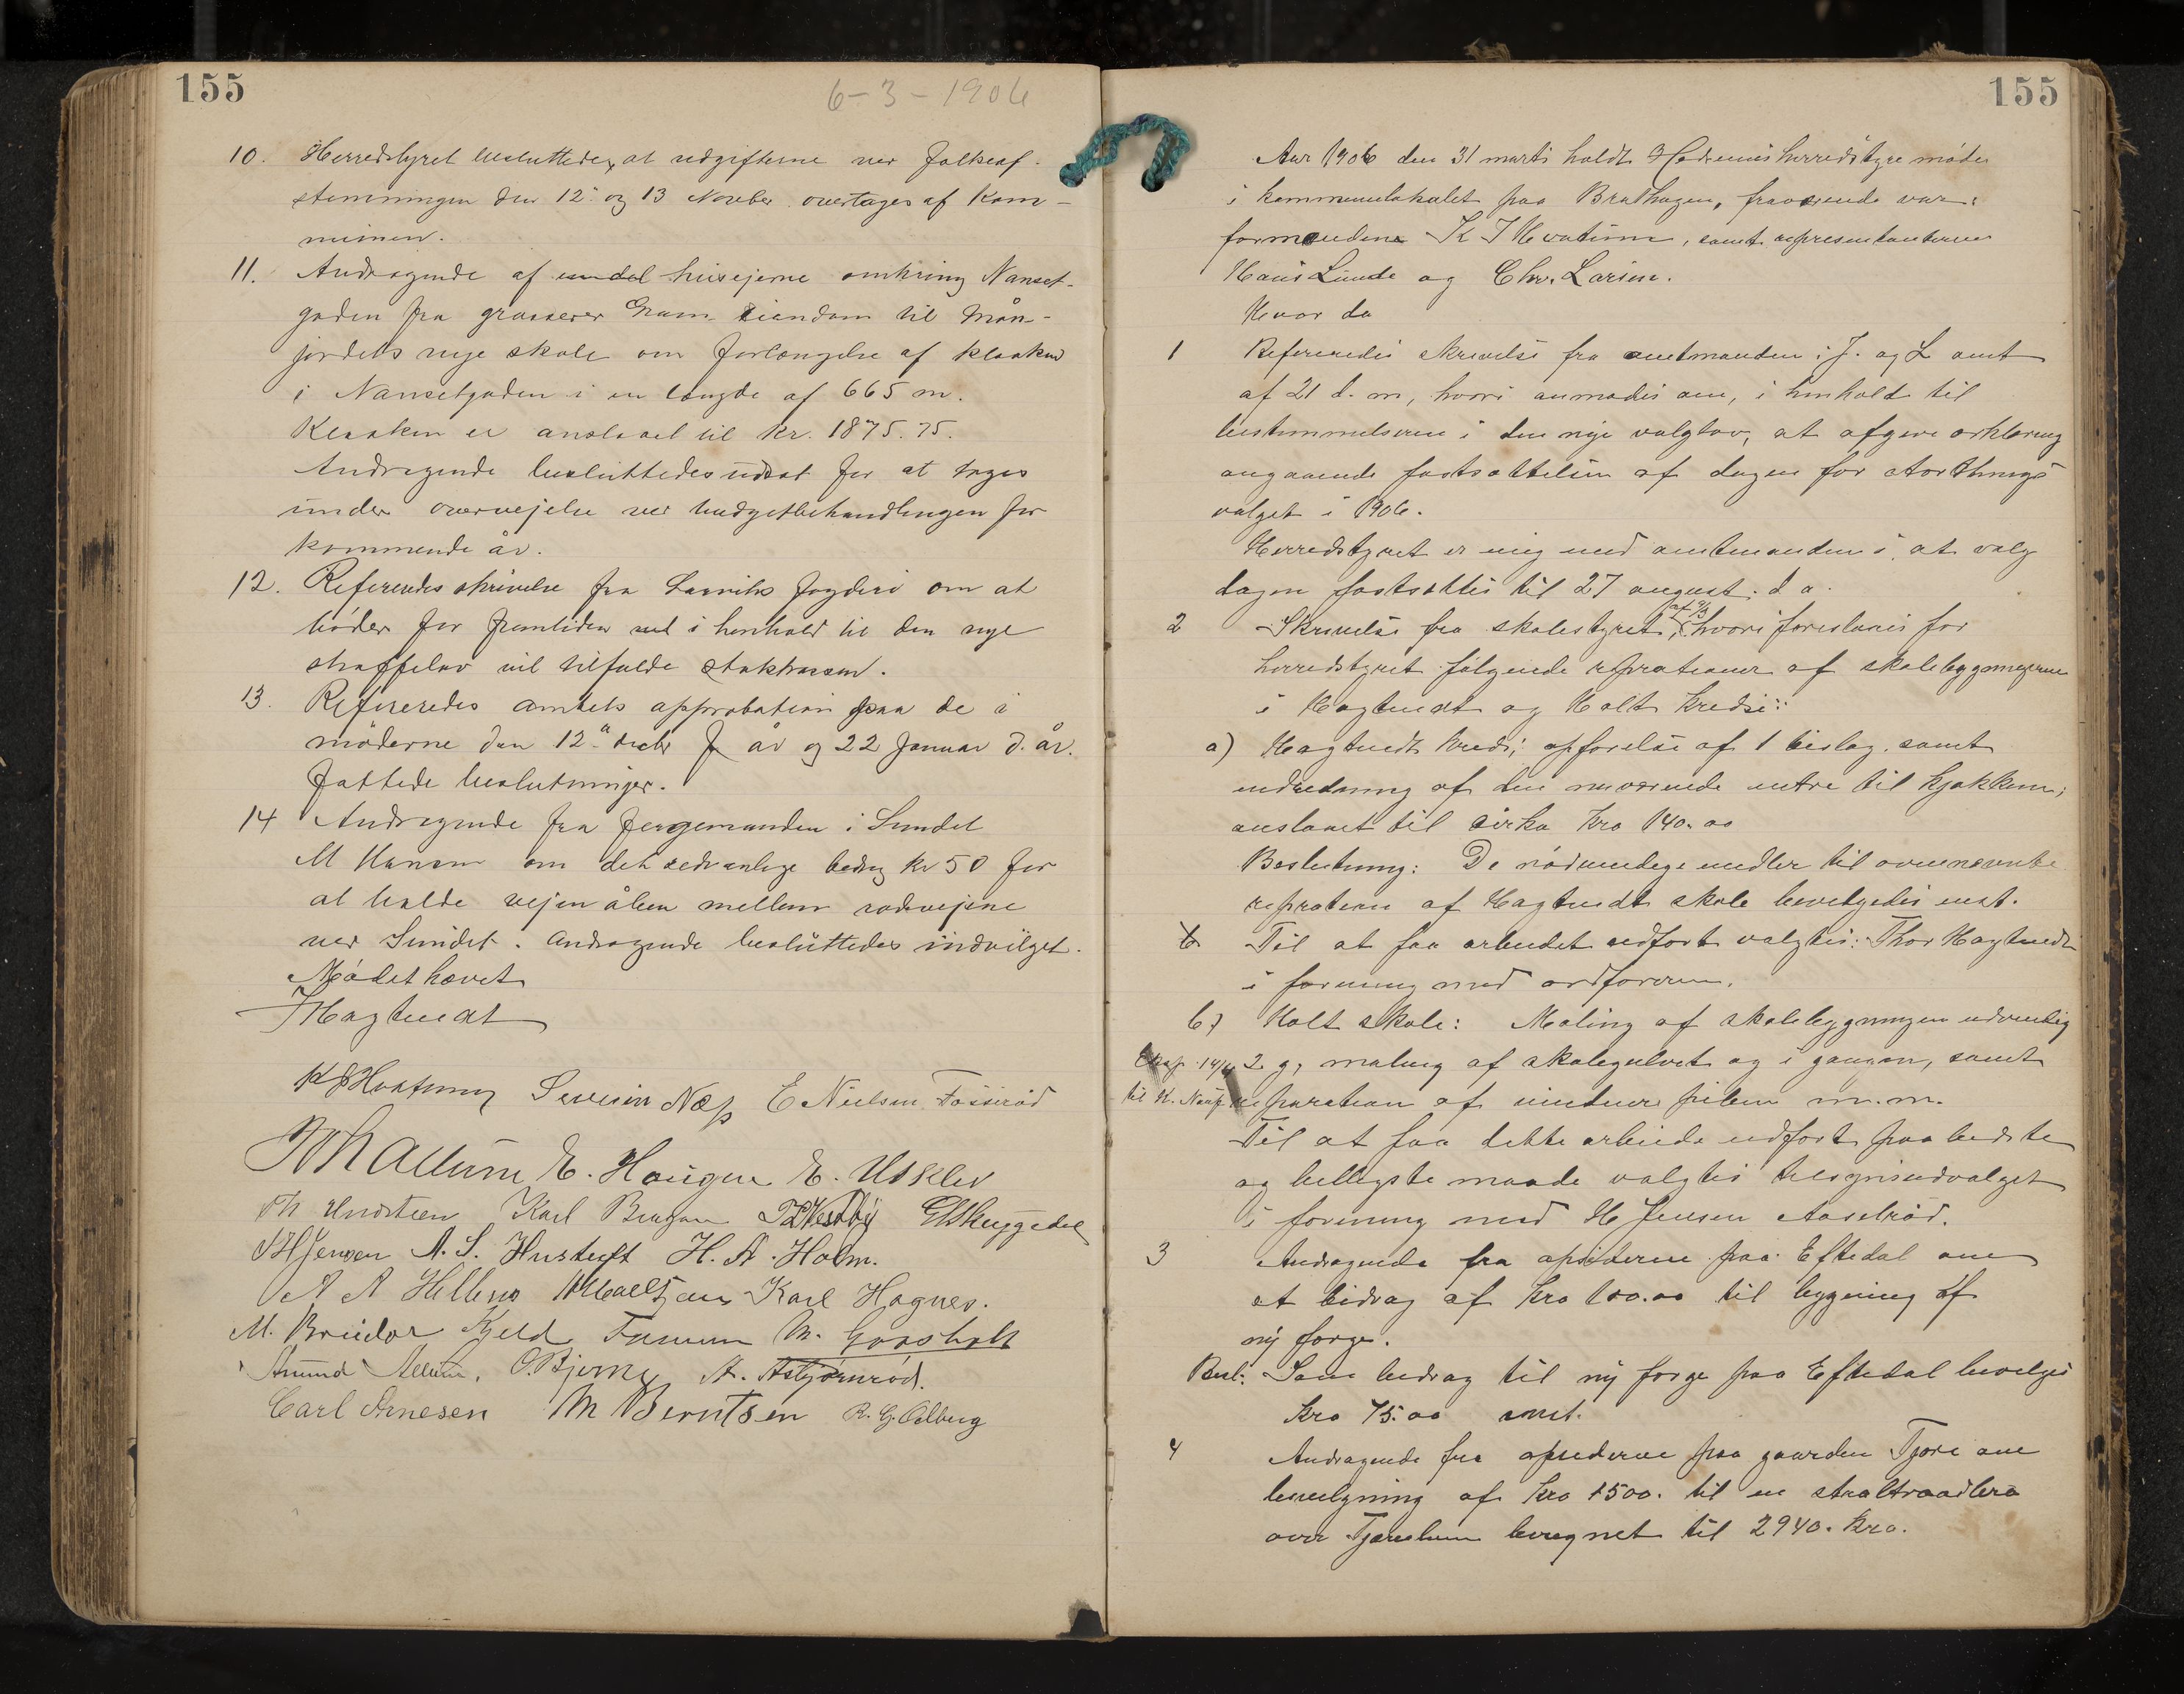 155
6-3-1906
10. Herredstyret besluttede, at udgifterne ved folkeaf-
stemningen den 12. og 13 November overtages af kom-
munen.
11. Andragende af en del husejerne omkring Nanset-
gaden fra grosserer Grams eiendom til Mån-
jordets nye skole om forlængelse af kloaken
i Nansetgaden i en længde af 665 m.
Kloaken er anslaaet til kr. 1875.75.
Andragende besluttedes udsat for at tages
under overvejelse ved budgetbehandlingen for
kommende år.
12. Refereredes skrivelse fra Larviks fogderi om at
bøder for fremtiden i henhold til den nye
straffelov vil tilfalde statskassen.
13. Refereredes amtets approbation paa de i
møderne den 12. decbr f. år og 22 Januar d. år.
fattede beslutninger.
14 Andragende fra fergemanden i Sundet
M Hansen om det sedvanlige bidrag kr 50 for
at holde vejen åben mellem rodevejene
ved Sundet. Andragende besluttedes indvilget.
Mødet hævet
T Hagtvedt
K J Hvatum Severin Næss E Nielsen Fosserød
M Allum E. Haugen E. Usklev
Th Undsteen Karl Bergan Vestby Skuggedal
J H Jensen A. S. Hustuft H. A. Holm.
A A Hellenes Karl Hagnes.
M. Breidor Kjeld Fammen M. Gaasholt
Amund Allum. O. Bjerne A. Asbjørnrød.
Carl Arnesen M Berntsen R. G. Odberg
155
Aar 1906 den 31 marts holdt Hedrums herredstyre møde
i kommunelokalet paa Brathagen, fraværende var:
formændene K J Hvatum, samt representanterne
Hans Lunde og Chr. Larsen.
Hvor da
1 Refereredes skrivelse fra amtmanden i J. og L amt
af 21 d. m, hvori anmodes om, i henhold til
bestemmelserne i den nye valglov, at afgive erklæring
angaaende fastsættelsen af dagen for storthings
valget i 1906.
Herredstyret er enig med amtmanden i, at valg
dagen fastsættes til 27 august d a.
2 Skrivelse fra skolestyret, hvori foreslaaes for
herredstyret følgende reprationer af skolebygningerne
i Hagtvedt og Holt kredse:
a) Hagtvedt kreds; opførelse af 1 bislag, samt
indredning af den nuværende entre til kjøkken;
anslaaet til cirka kro 140.00
Beslutning: De nødvendige midler til ovennevnte
repration af Hagtvedt skole bevilgedes enst.
Til at faa arbeidet udført valgtes: Thor Hagtvedt
i forening med ordføreren.
b) Holt skole: Maling af skolebygningen udvendig
2 g, maling af skolegulvet og i gangen, samt
reparation af vinduer piben m.m.
Til at faa dette arbeide udført paa bedste
og billigste maade valgtes tilsynsudvalget
i forening med H Jensen Aaselrød.
3 Andragende fra opsidderne paa Eftedal om
et bidrag af kro 100.00 til bygning af
ny færge.
Besl: Som bidrag til ny færge paa Eftedal bevilges
kro 75.00 enst.
4 Andragende fra opsidderne paa gaarden Tjøre om
bevilgning af kro 1500. til en staaltraadbro
over beregnet til 2940. kro.